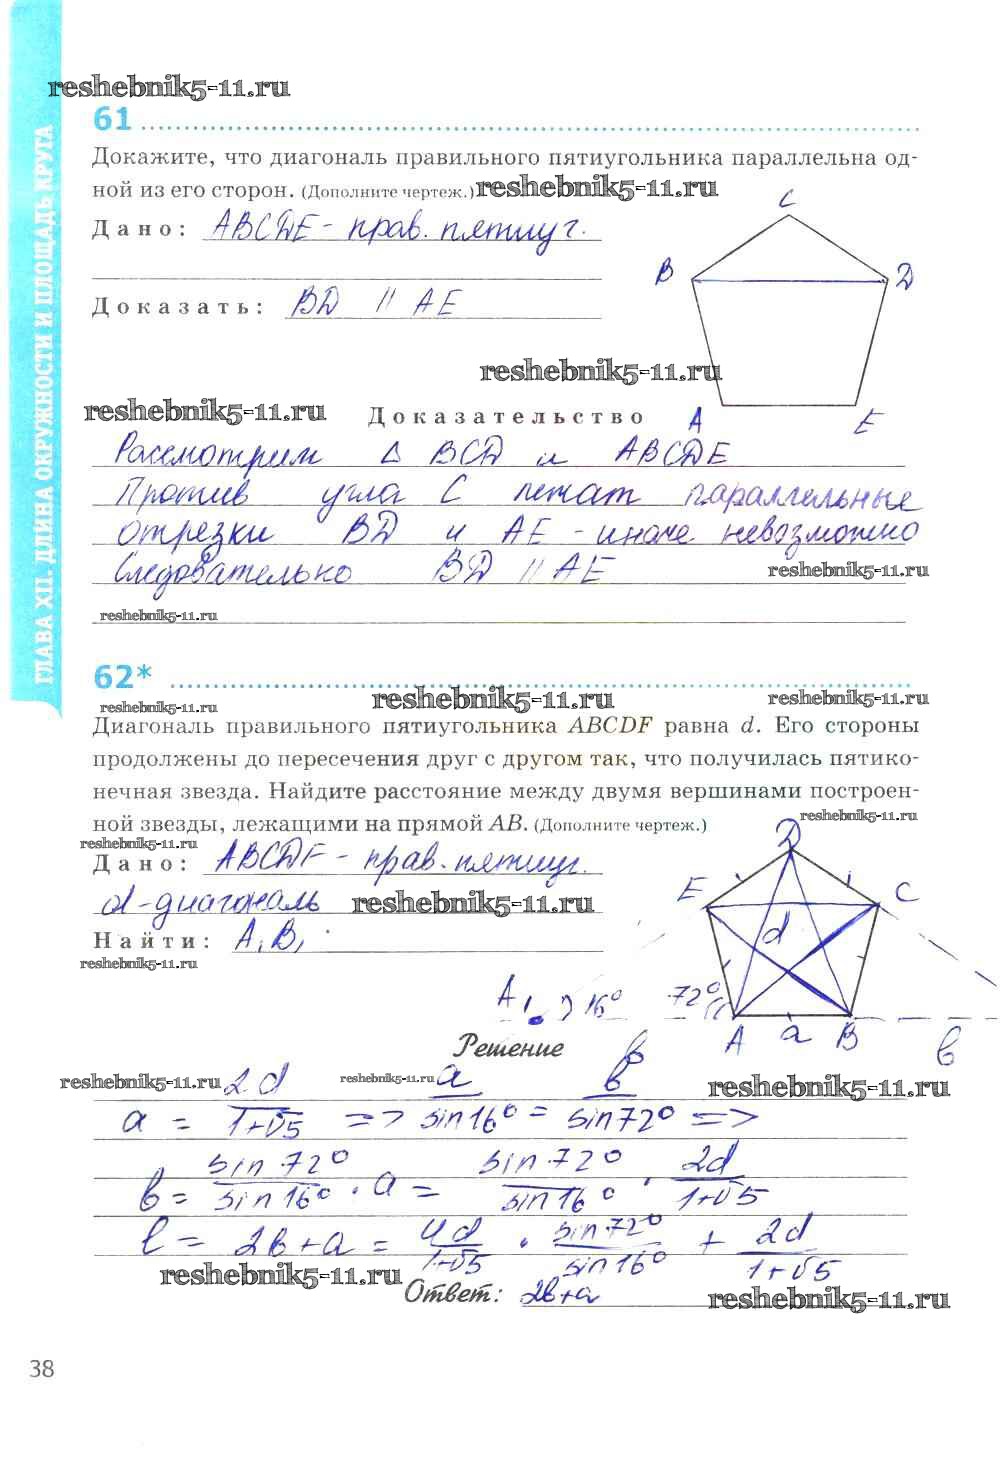 reshebnik5-11.ru
ГЛАВА XII. ДЛИНА ОКРУЖНОСТИ И ПЛОЩАДЬ КРУГА
61
Докажите, что диагональ правильного пятиугольника параллельна од-
ной из его сторон. (Дополните чертеж.) reshebnik5-11.ru
C
Дано: ABCDE - прав. пятиуг.
B D
Доказать: BD || AE
reshebnik5-11.ru
reshebnik5-11.ru Доказательство A E
Рассмотрим Δ BCD и ABCDE
Против угла C лежат параллельные
отрезки BD и AE - иначе невозможно
Следовательно BD || AE reshebnik5-11.ru
reshebnik5-11.ru
62*
reshebnik5-11.ru reshebnik5-11.ru reshebnik5-11.ru
Диагональ правильного пятиугольника ABCDF равна d. Его стороны
продолжены до пересечения друг с другом так, что получилась пятико-
нечная звезда. Найдите расстояние между двумя вершинами построен-
ной звезды, лежащими на прямой AB. (Дополните чертеж.) reshebnik5-11.ru
reshebnik5-11.ru D
Дано: ABCDF - прав. пятиуг.
E C
d - диагональ reshebnik5-11.ru
d
Найти: A₁B₁
reshebnik5-11.ru
A₁ 16° 72°
A a B b
Решение
reshebnik5-11.ru reshebnik5-11.ru reshebnik5-11.ru
a = 2d/(1+√5) => a/sin16° = b/sin72° =>
b = sin72°/sin16° · a = sin72°/sin16° · 2d/(1+√5)
l = 2b+a = 4d/(1+√5) · sin72°/sin16° + 2d/(1+√5)
reshebnik5-11.ru Ответ: 2b+a reshebnik5-11.ru
38